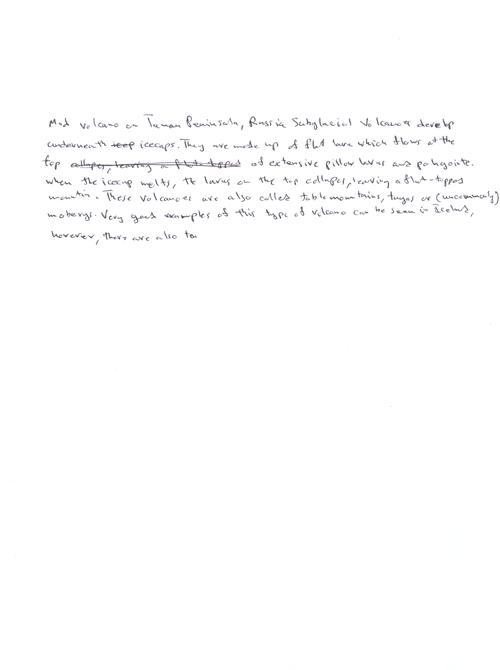 Mud volcano on Taman Peninsula, Russia Subglacial Volcanoes develop
underneath icecaps. They are made up of flat lava which flows at the
top of extensive pillow lavas and palagonite.
When the icecap melts, the lavas on the top collapses, leaving a flat-topped
mountin. These volcanoes are also called table mountains, tuyas or (uncommonly)
mobergs. Very good examples of this type of volcano can be seen in Iceland,
however, there are also